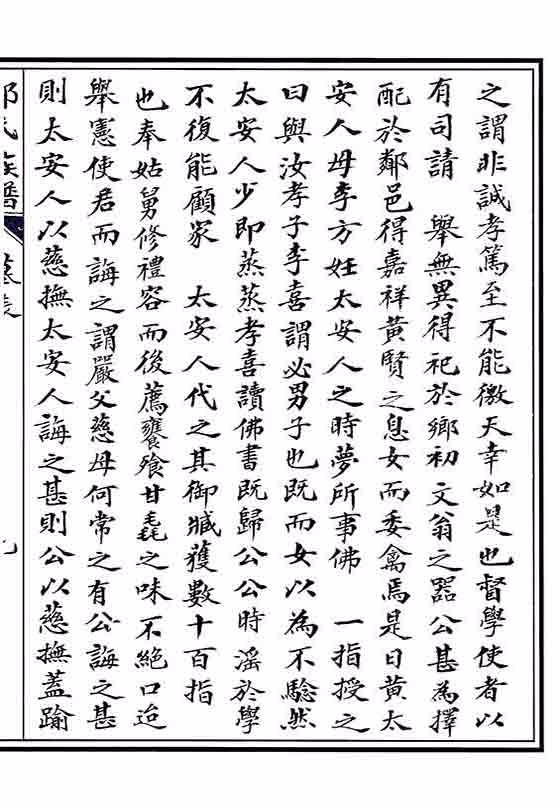 之謂非誠孝篤至不能徼天幸如是也督學使者以
有司請　舉無異得祀於鄉初　文翁之器公甚為擇
配於鄰邑得嘉祥黃賢之息女而委禽焉是日黃太
安人母李方妊太安人之時夢所事佛　一指授之
曰與汝孝子李喜謂必男子也既而女以為不驗然
太安人少即烝烝孝喜讀佛書既歸公公時滛於學
不復能顧家　太安人代之其御臧獲數十百指
也奉姑舅修禮容而後薦饔飧甘毳之味不絕口迨
舉憲使君而誨之謂嚴父慈母何常之有公誨之甚
則太安人以慈撫太安人誨之甚則公以慈撫蓋踰
氏族譜
墓表
九